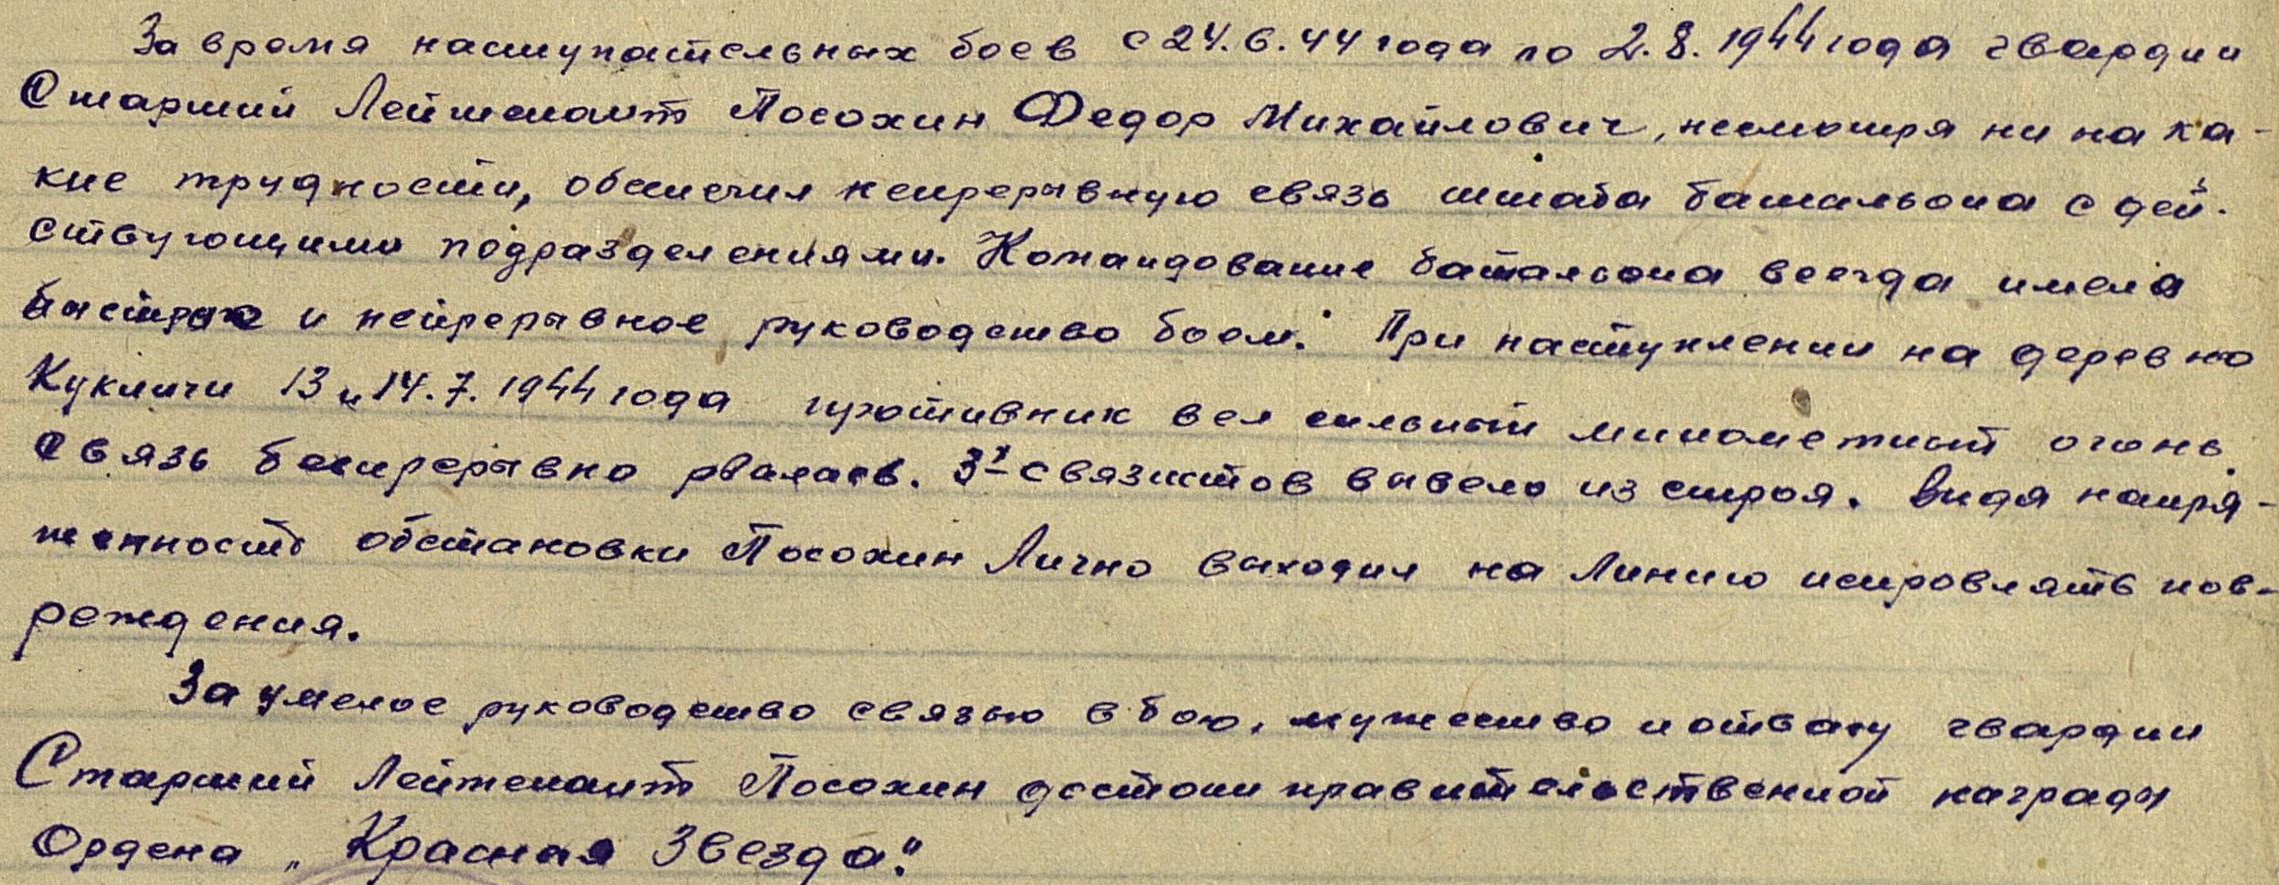 За время наступательных боев с 24.6.44 года по 2.8.1944 года гвардии
Старший Лейтенант Посохин Федор Михайлович, несмотря ни на ка-
кие трудности, обеспечил непрерывную связь штаба батальона с дей-
ствующими подразделениями. Командование батальона всегда имела
быстрое и непрерывное руководство боем. При наступлении на деревню
Кукличи 13 и 14.7.1944 года противник вел сильный минометный огонь.
Связь беспрерывно рвалась. 3х связистов вывело из строя. Видя напря-
женность обстановки Посохин Лично выходил на Линию исправлять пов-
реждения.
За умелое руководство связью в бою, мужество и отвагу гвардии
Старший Лейтенант Посохин достоин правительственной награды
Ордена „Красная Звезда".